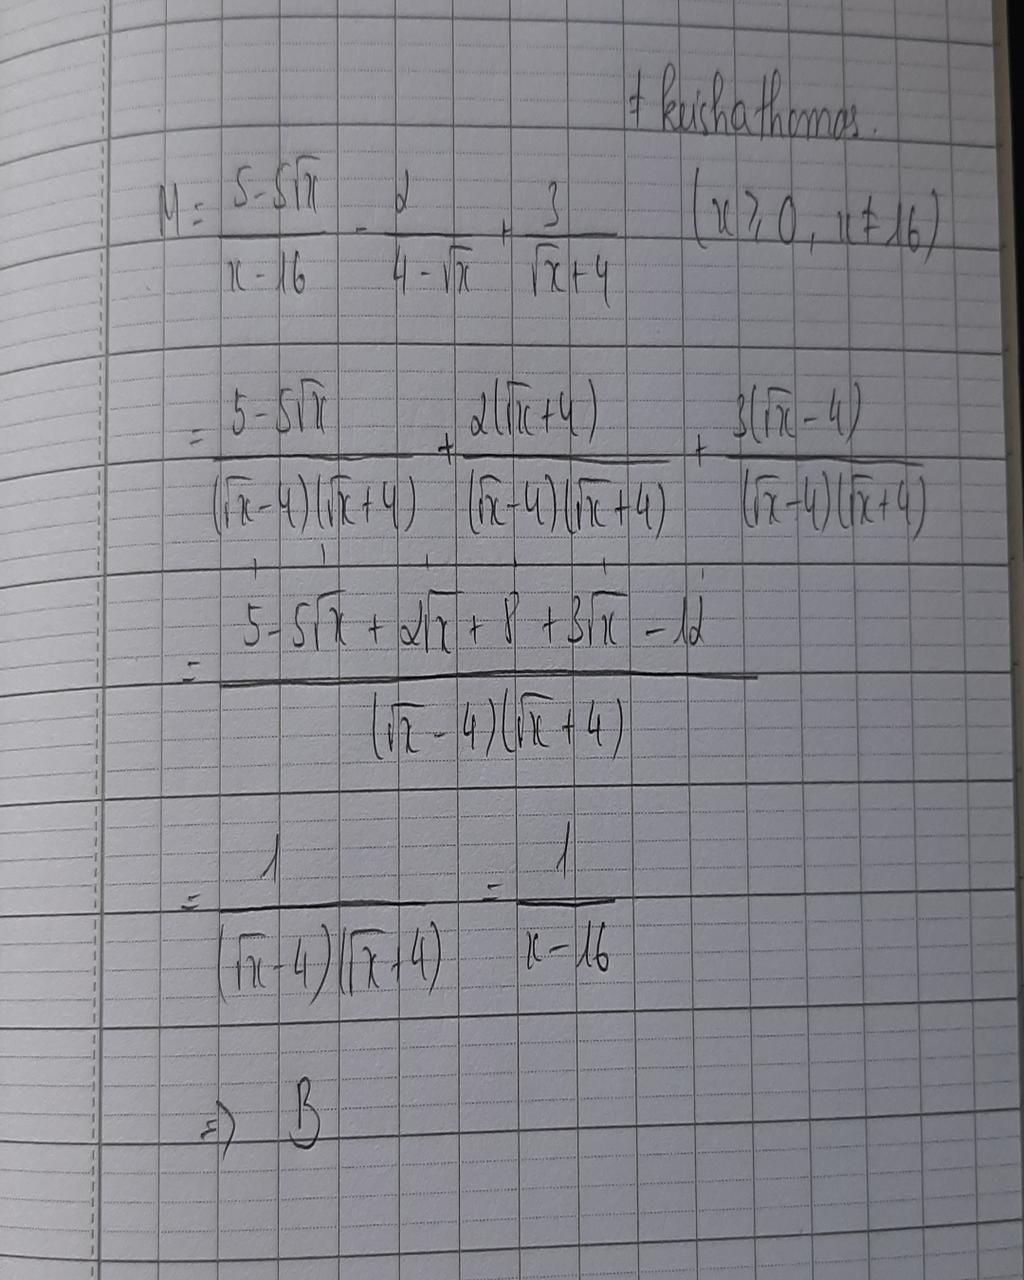 # keishathomas.
M = (5-5√x)/(x-16) - 2/(4-√x) + 3/(√x+4) (x ⩾ 0, x ≠ 16)
= (5-5√x)/((√x-4)(√x+4)) + 2(√x+4)/((√x-4)(√x+4)) + 3(√x-4)/((√x-4)(√x+4))
= (5-5√x + 2√x + 8 + 3√x - 12)/((√x-4)(√x+4))
= 1/((√x-4)(√x+4)) = 1/(x-16)
=> B